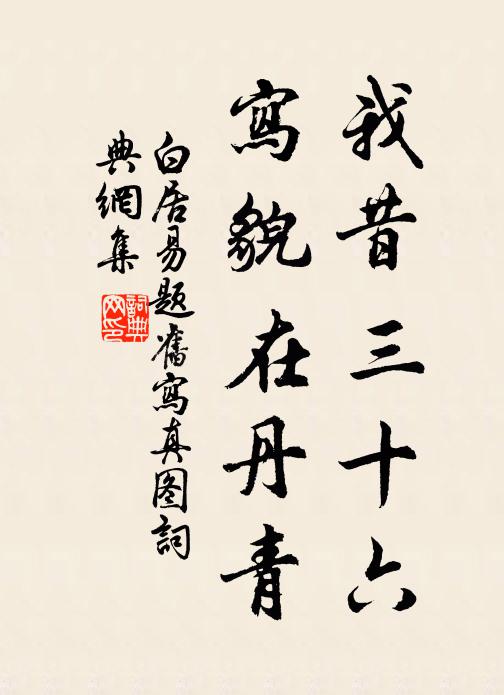 我昔三十六
寫貌在丹青
白居易題舊寫真图詞
典網集
詞典网印